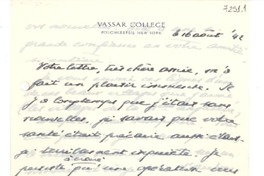 7251.1
VASSAR COLLEGE
POUGHKEEPSIE · NEW YORK
le 16 août '42
Votre lettre, très chère amie, m'a
fait un plaisir immense. Il
y a longtemps que j'étais sans
nouvelles, je savais que votre
santé était précaire aussi étais-
je terriblement inquiète. Je
une opération